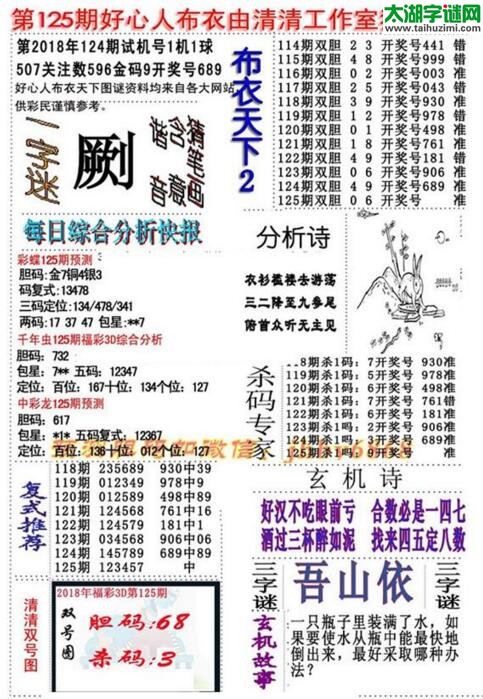 太湖字谜网
www.taihuzimi.com
第125期好心人布衣由清清工作室
第2018年124期试机号1机1球
507关注数596金码9开奖号689
好心人布衣天下图谜资料均来自各大网站
供彩民谨慎参考。
一字迷
劂
猜笔画
含意
猪音
布衣天下2
114期双胆 2 3 开奖号441 错
115期双胆 4 8 开奖号999 错
116期双胆 0 2 开奖号003 准
117期双胆 2 5 开奖号043 错
118期双胆 3 9 开奖号930 准
119期双胆 4 9 开奖号978 准
120期双胆 0 1 开奖号498 错
121期双胆 1 8 开奖号761 准
122期双胆 4 9 开奖号181 错
123期双胆 0 6 开奖号906 准
124期双胆 4 9 开奖号689 准
125期双胆 0 6 开奖号 准
每日综合分析快报
彩蝶125期预测
胆码:金7铜4银3
码复式:13478
三码定位:134/478/341
两码:17 37 47 包星:**7
千年虫125期福彩3D综合分析
胆码:732
包星:7** 五码:12347
定位:百位:167十位:134个位:127
中彩龙125期预测
胆码:617
包星:*1* 五码复式:12367
定位:百位:136十位:012个位:127
分析诗
衣衫褴褛去游荡
三二降至九参尾
俯首众听无主见
杀码专家
8期杀1码:7开奖号 930准
119期杀1码:5开奖号 978准
120期杀1码:6开奖号 498准
121期杀1码:6开奖号 761错
122期杀1码:6开奖号 181准
123期杀1码:4开奖号 906准
124期杀1码:2开奖号 689准
125期杀1码:9开奖号 准
复式推荐
118期 235689 930中39
119期 012349 978中9
120期 012589 498中89
121期 124568 761中16
122期 124579 181中1
123期 034568 906中06
124期 145789 689中89
125期 123457 中
玄机诗
好汉不吃眼前亏 合数必是一四七
酒过三杯醉如泥 找来四五定八数
三字谜
吾山依
三字谜
清清双号图
2018年福彩3D第125期
双号图
胆码:68
杀码:3
玄机故事
一只瓶子里装满了水,如
果要使水从瓶中能最快地
倒出来,最好采取哪种办
法?